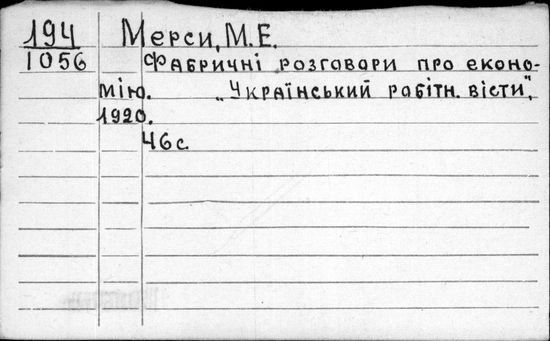 194 Мерси, М.Е.
1056 Фабричні розговори про еконо-
мію. „Український робітн. вісти",
1920.
46 с